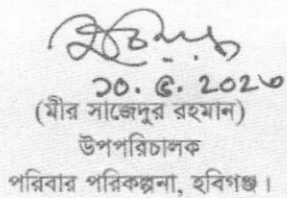 ১০. ৫. ২০২৩
(মীর সাজেদুর রহমান)
উপপরিচালক
পরিবার পরিকল্পনা, হবিগঞ্জ।